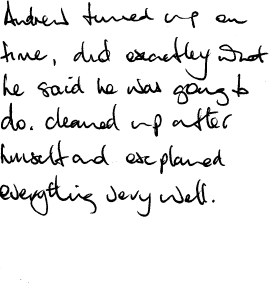 Andrew turned up on
time, did exactley what
he said he was going to
do. cleaned up after
himself and explained
everything very well.